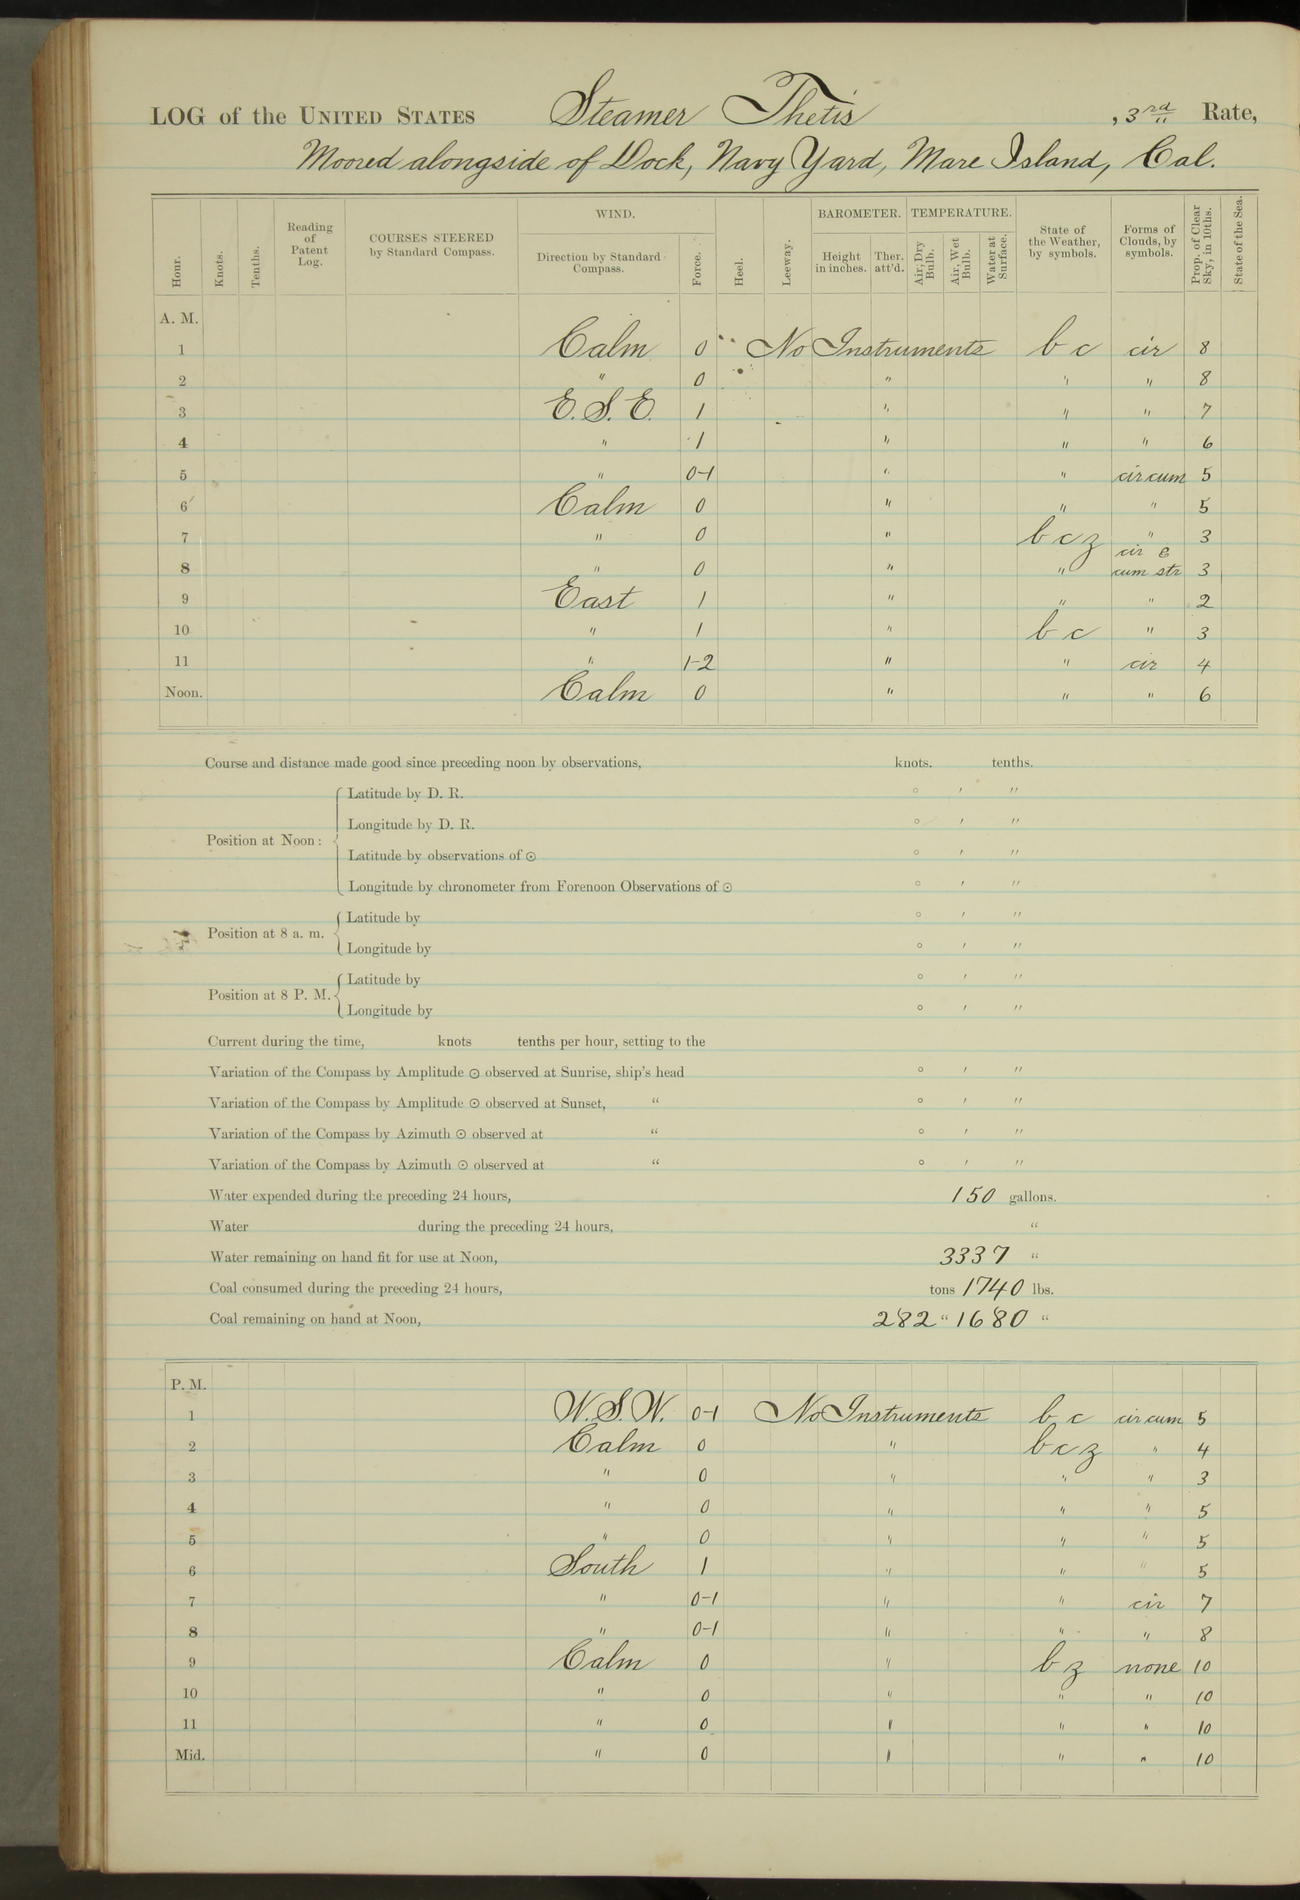 LOG of the UNITED STATES Steamer Thetis, 3rd Rate,
Moored alongside of Dock, Navy Yard, Mare Island, Cal.
Hour. Knots. Tenths. Reading of Patent Log. COURSES STEERED by Standard Compass. WIND. Direction by Standard Compass. Force. Heel. Leeway. BAROMETER. Height in inches. Ther. att'd. TEMPERATURE. Air, Dry Bulb. Air, Wet Bulb. Water at Surface. State of the Weather, by symbols. Forms of Clouds, by symbols. Prop. of Clear Sky, in 10ths. State of the Sea.
A. M.
1 Calm 0 No Instruments b c cir 8
2 " 0 " " " 8
3 E. S. E. 1 " " " 7
4 " 1 " " " 6
5 " 0-1 " " cir cum 5
6 Calm 0 " " " 5
7 " 0 " b c z " 3
8 " 0 " " cir & cum str 3
9 East 1 " " " 2
10 " 1 " b c " 3
11 " 1-2 " " cir 4
Noon. Calm 0 " " " 6
Course and distance made good since preceding noon by observations, knots. tenths.
Position at Noon:
Latitude by D. R. ° ′ ″
Longitude by D. R. ° ′ ″
Latitude by observations of ⊙ ° ′ ″
Longitude by chronometer from Forenoon Observations of ⊙ ° ′ ″
Position at 8 a. m.
Latitude by ° ′ ″
Longitude by ° ′ ″
Position at 8 P. M.
Latitude by ° ′ ″
Longitude by ° ′ ″
Current during the time, knots tenths per hour, setting to the
Variation of the Compass by Amplitude ⊙ observed at Sunrise, ship's head ° ′ ″
Variation of the Compass by Amplitude ⊙ observed at Sunset, “ ° ′ ″
Variation of the Compass by Azimuth ⊙ observed at “ ° ′ ″
Variation of the Compass by Azimuth ⊙ observed at “ ° ′ ″
Water expended during the preceding 24 hours, 150 gallons.
Water during the preceding 24 hours, “
Water remaining on hand fit for use at Noon, 3337 “
Coal consumed during the preceding 24 hours, tons 1740 lbs.
Coal remaining on hand at Noon, 282 “ 1680 “
P. M.
1 W. S. W. 0-1 No Instruments b c cir cum 5
2 Calm 0 " b c z " 4
3 " 0 " " " 3
4 " 0 " " " 5
5 " 0 " " " 5
6 South 1 " " " 5
7 " 0-1 " " cir 7
8 " 0-1 " " " 8
9 Calm 0 " b z none 10
10 " 0 " " " 10
11 " 0 " " " 10
Mid. " 0 " " " 10